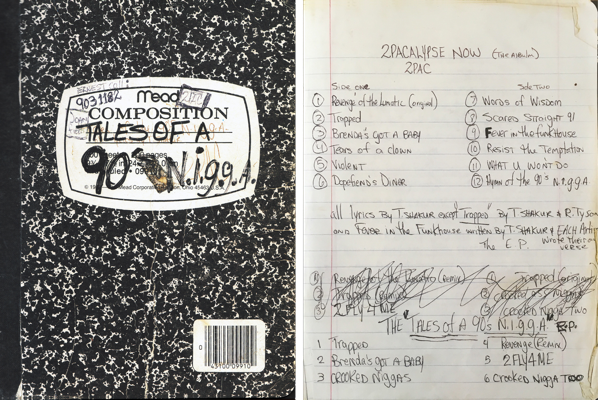 9031182
Mead
COMPOSITION
TALES OF A
90's N.i.g.g.A.
0
43100"09910
2PACALYPSE NOW (THE ALBUM)
2PAC
SIDE ONE
1 Revenge of the Lunatic (original)
2 Trapped
3 Brenda's got A BABY
4 Tears of a clown
5 Violent
6 Dopefiend's DINER
SIDE TWO
7 Words of Wisdom
8 Scared Straight 91
9 Fever in the funkHouse
10 Resist the Temptation
11 WHAT U WON'T DO
12 Hymn of the 90's N.I.G.G.A
all lyrics By T. SHAKUR except "Trapped" By T SHAKUR & R. Tyson
AND Fever in the Funkhouse written By T. SHAKUR & EACH Artist
wrote their own verse
The E.P.
2FLY4ME
THE "TALES of A 90's N.I.G.G.A" E.P.
1 Trapped
2 Brenda's got A BABY
3 CROOKED Niggas
4 Revenge (Remix)
5 2FLY4ME
6 Crooked Nigga TOO